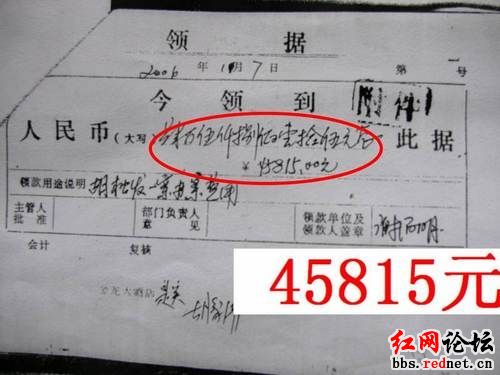 领 据
2006 年 11月 7日 第 号
附件
今 领 到
人民币（大写）肆万伍仟捌佰壹拾伍元 此据
￥45815.00元
领款用途说明 胡 案办案费用
主管人批准 部门负责人意见 领款单位及领款人盖章
会计 复核
龙大酒店
45815元
红网论坛
bbs.rednet.cn